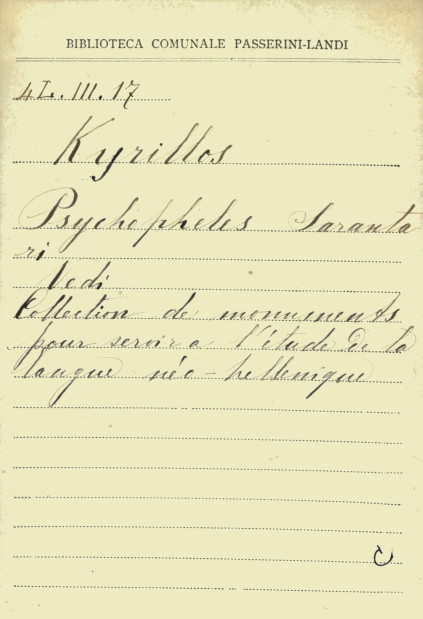 BIBLIOTECA COMUNALE PASSERINI-LANDI
4L.III.17
Kyrillos
Psychopheles Saranta
ri
Vedi
Collection de monuments
pour servir a l'étude de la
langue néo-hellenique